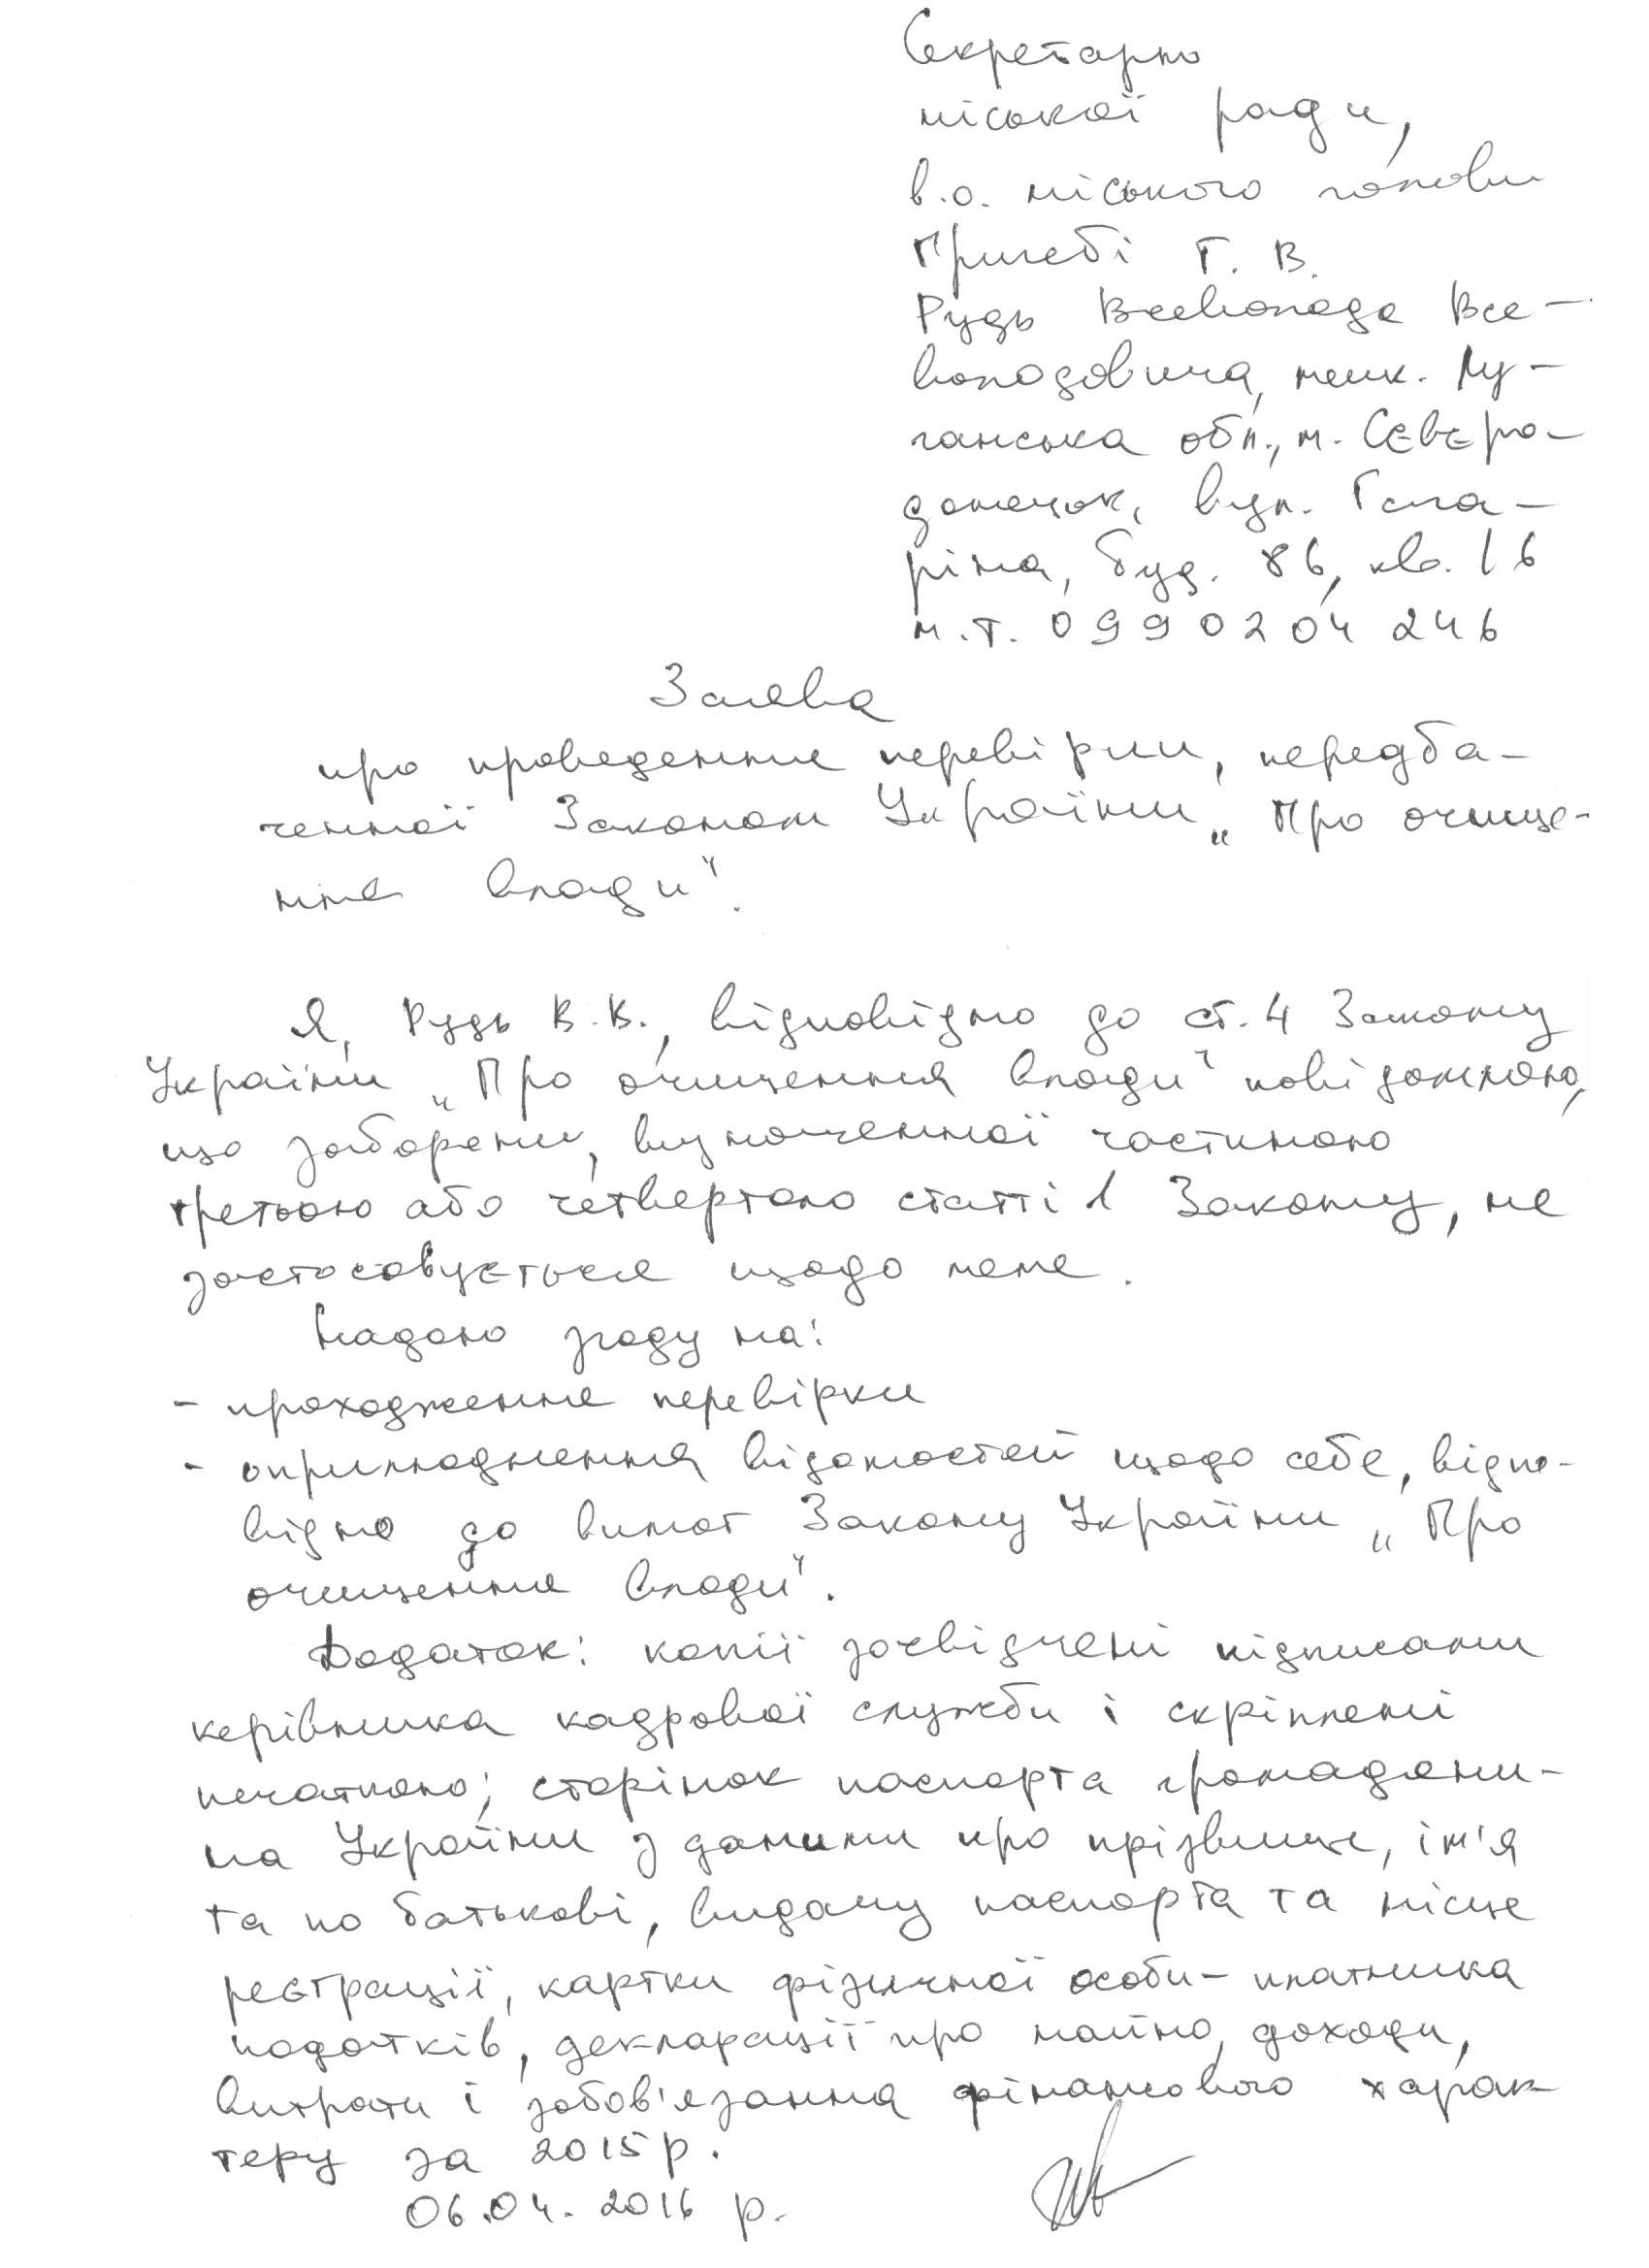 Секретарю
міської ради,
в.о. міського голови
Пригебі Г. В.
Рудь Всеволода Все-
володовича, мешк. Лу-
ганська обл., м. Сєвєро-
донецьк, вул. Гага-
ріна, буд. 86, кв. 16
м.т. 0990204246
Заява
про проведення перевірки, передба-
ченної Законом України „Про очище-
ння влади".
Я, Рудь В.В., відповідно до ст. 4 Закону
України „Про очищення влади" повідомляю,
що заборони, визначенної частиною
третьою або четвертою статті 1 Закону, не
застосовується щодо мене.
Надаю згоду на:
- проходження перевірки
- оприлюднення відомостей щодо себе, відпо-
відно до вимог Закону України „Про
очищення влади".
Додаток: копії засвідчені підписами
керівника кадрової служби і скріплені
печаткою; сторінок паспорта громадяни-
на України з даними про прізвище, ім'я
та по батькові, видачу паспорта та місце
реєстрації, картки фізичної особи-платника
податків, декларації про майно, доходи,
витрати і зобов'язання фінансового харак-
теру за 2015 р.
06.04.2016 р.